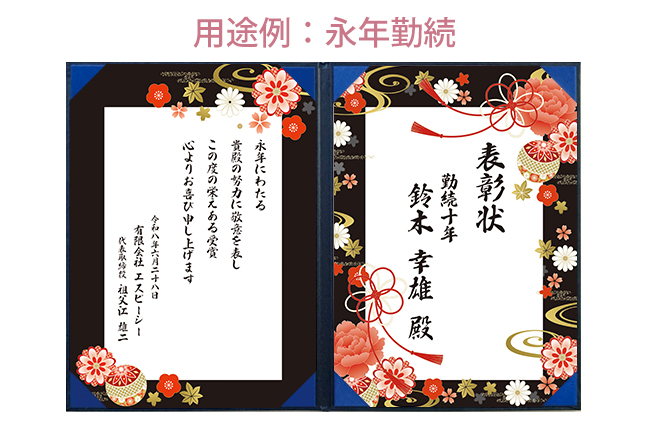 用途例：永年勤続
表彰状
勤続十年
鈴木 幸雄 殿
永年にわたる
貴殿の努力に敬意を表し
この度の栄えある受賞
心よりお喜び申し上げます
令和八年六月二十八日
有限会社 エスピーシー
代表取締役 祖父江 雄二